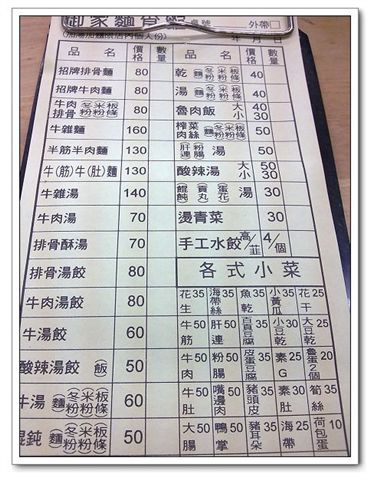 御家麵食 桌號 外帶
(加湯加麵限店內個人份) 年 月 日
品名 價格 數量 品名 價格 數量
招牌排骨麵 80 乾(麵)(冬粉)(米粉)(板條) 40
招牌牛肉麵 80 湯(麵)(冬粉)(米粉)(板條) 40
牛肉排骨(冬粉)(米粉)(板條) 80 魯肉飯 大小 40 30
牛雜麵 160 榨菜肉絲(麵)(冬粉)(米粉)(板條) 50
半筋半肉麵 130 (肝連)(粉腸)湯 50
牛(筋)牛(肚)麵 130 酸辣湯 大小 50 30
牛雜湯 140 (餛飩)(貢丸)(蛋花)湯 30
牛肉湯 70 燙青菜 30
排骨酥湯 70 手工水餃(高)(韮) 4/個
排骨湯餃 80 各式小菜
牛肉湯餃 80 花生 35 海帶絲 35 魚乾 35 小黃瓜 35 花干 25
牛湯餃 60 牛筋 50 肝連 50 百頁豆腐 30 小豆乾 30 大豆乾 25
酸辣湯餃(飯) 50 牛肉 50 粉腸 50 皮蛋豆腐 35 素G 25 魯蛋2個 20
牛湯(麵)(冬粉)(米粉)(板條) 60 牛肚 50 嘴邊肉 50 豬頭皮 35 素肚 30 筍絲 35
餛飩(麵)(冬粉)(米粉)(板條) 50 大腸 50 鴨掌 50 豬耳朵 35 海帶 25 荷包蛋 10